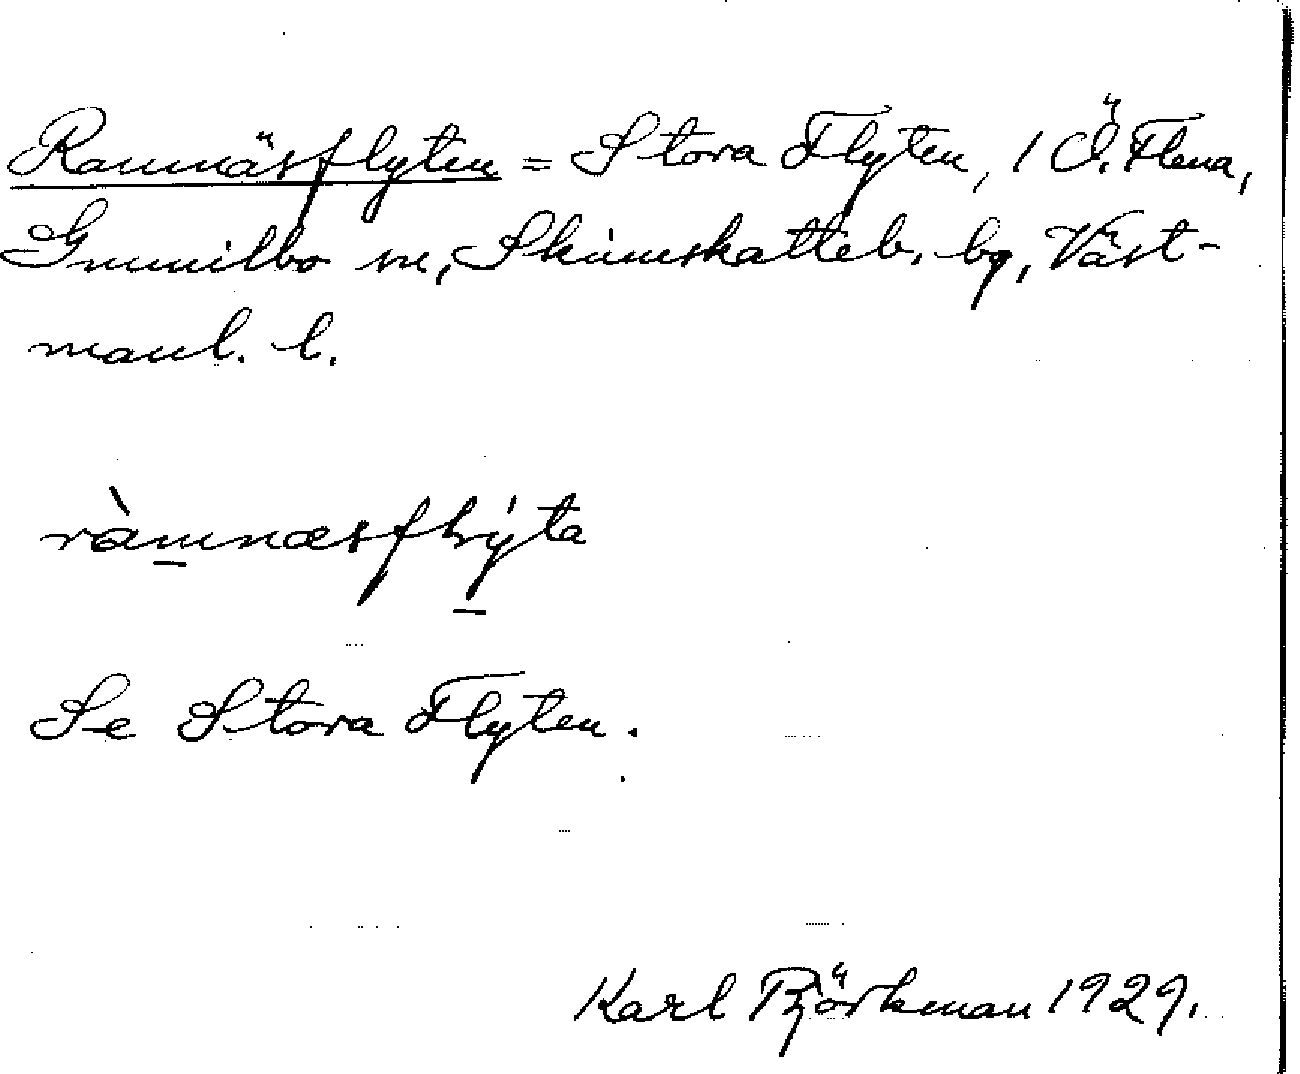 Ramnäsflyten = Stora Flyten, 1 Ö. Flena,
Gunnilbo sn, Skinnskatteb. bg, Väst-
manl. l.
ràmnæsflýta
Se Stora Flyten.
Karl Björkman 1929.